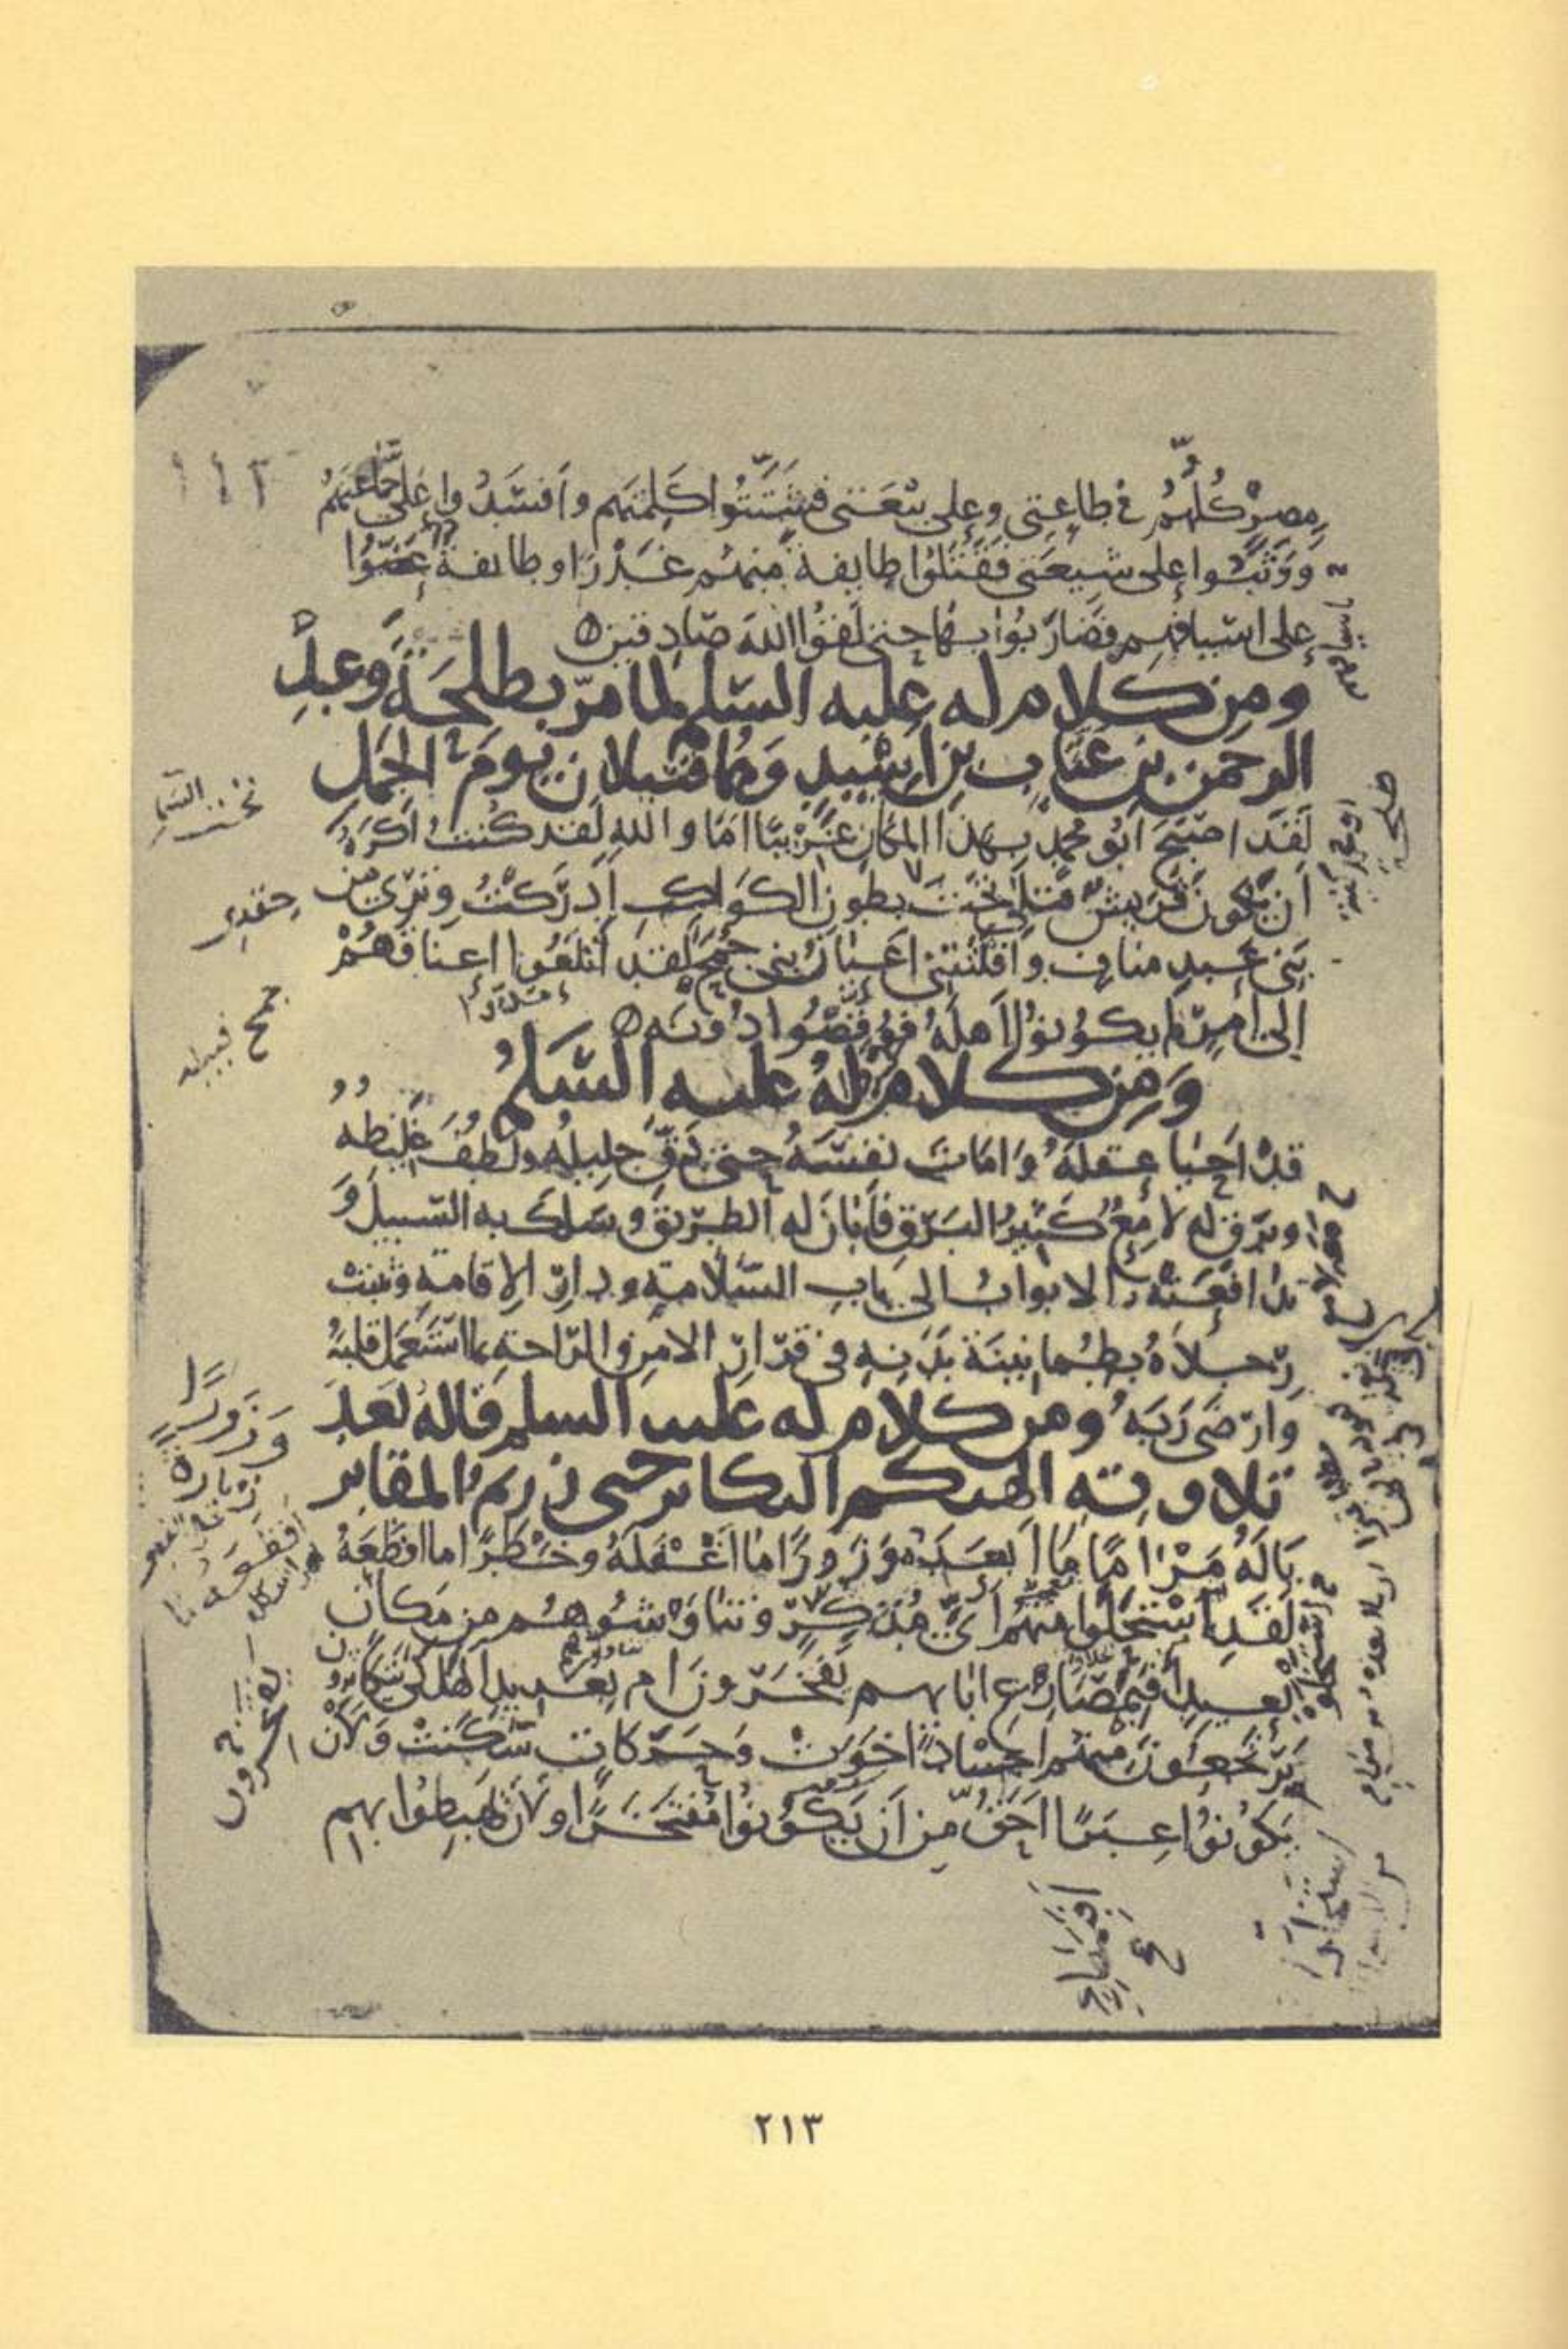 مِصرٍ كُلُّهُم في طاعتي وعلى بيعتي فشتّتوا كلمتهم وافسدوا على جماعتهم
ووثبوا على شيعتي فقتلوا طايفة منهم غدرا وطايفة عضّوا
على اسيافهم فضاربوا بها حتى لقوا الله صادقين
ومن كلام له عليه السلم لما مرّ بطلحة وعبد
الرحمن بن عتاب بن اسيد وهما قتيلان يوم الجمل
لقد اصبح ابو محمد بهذا المكان غريبا اما والله لقد كنت اكره
ان تكون قريش قتلى تحت بطون الكواكب ادركت وتري من
بني عبد مناف وافلتتني اعيان بني جمح لقد اتلعوا اعناقهم
الى امر لم يكونوا اهله فوقصوا دونه
ومن كلام له عليه السلم
قد احيا عقله وامات نفسه حتى دقّ جليله ولطف غليظه
وبرق له لامع كثير البرق فابان له الطريق وسلك به السبيل و
تدافعته الابواب الى باب السلامة ودار الاقامة وثبتت
رجلاه بطمانينة بدنه في قرار الامن والراحة بما استعمل قلبه
وارضى ربه ومن كلام له عليه السلم قاله بعد
تلاوته الهيكم التكاثر حتى زرتم المقابر
ياله مراما ما ابعده وزورا ما اغفله وخطرا ما افظعه
لقد استخلوا منهم ايّ مدّكر وتناوشوهم من مكان
بعيد افبمصارع ابايهم يفخرون ام بعديد الهلكى يتكاثرون
يرتجعون منهم اجسادا خوت وحركات سكنت ولان
يكونوا عبرا احق من ان يكونوا مفتخرا ولان يهبطوا بهم
جمح قبيلة
وزورا
افبمصارع
٢١٣